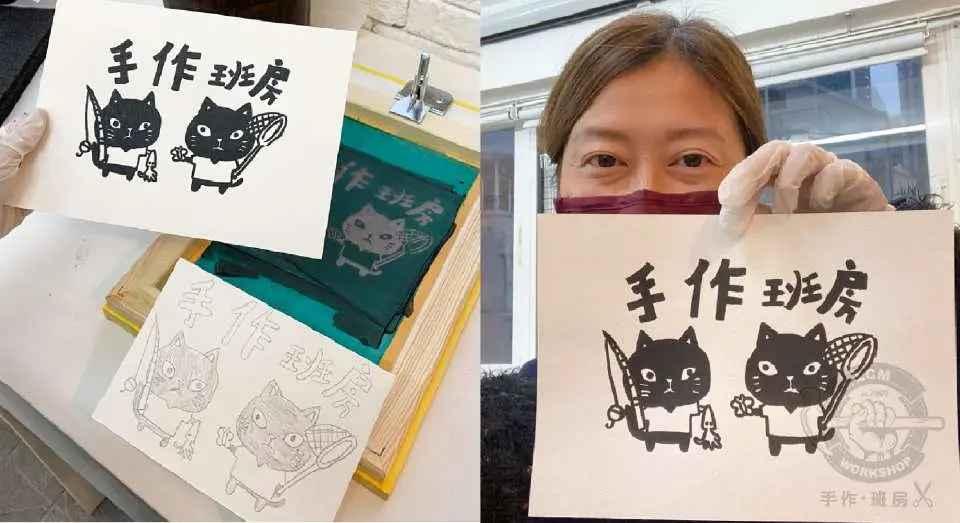 手作班房
手作班房
手作班房
手作班房
WORKSHOP
手作・班房